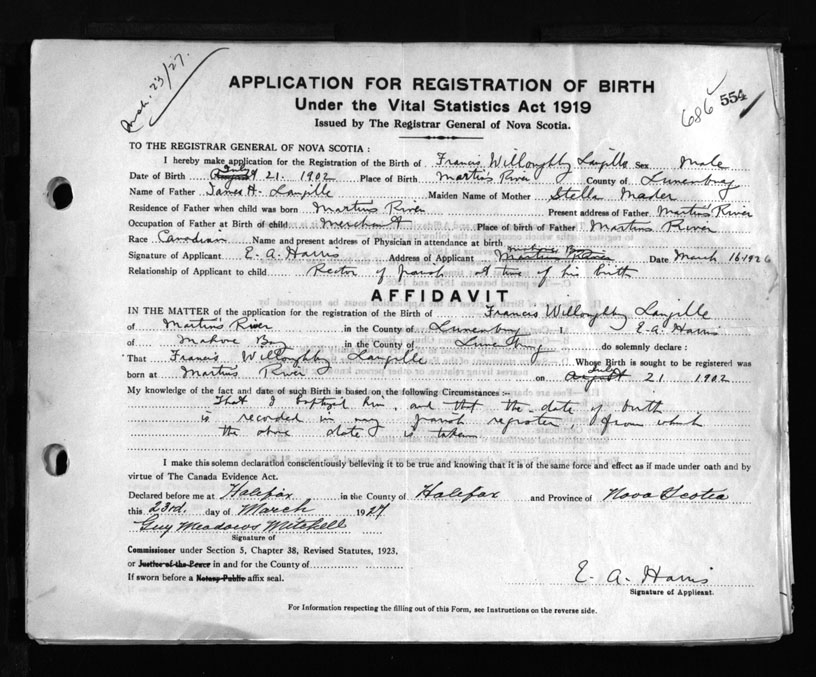 Mch. 23/27.
APPLICATION FOR REGISTRATION OF BIRTH
Under the Vital Statistics Act 1919
686 554
Issued by The Registrar General of Nova Scotia.
TO THE REGISTRAR GENERAL OF NOVA SCOTIA :
I hereby make application for the Registration of the Birth of Francis Willoughby Langille Sex Male
July
Date of Birth August 21. 1902 Place of Birth Martin's River County of Lunenburg
Name of Father James H. Langille Maiden Name of Mother Stella Mader
Residence of Father when child was born Martins River Present address of Father Martin's River
Occupation of Father at Birth of child Merchant Place of birth of Father Martins River
Race Canadian Name and present address of Physician in attendance at birth
Signature of Applicant E. A. Harris Address of Applicant Mahone Bay Martins River Date March 16 1926
Relationship of Applicant to child Rector of parish at time of his birth
AFFIDAVIT
IN THE MATTER of the application for the registration of the Birth of Francis Willoughby Langille
of Martin's River in the County of Lunenburg I, E. A. Harris
of Mahone Bay in the County of Lunenburg do solemnly declare :
That Francis Willoughby Langille Whose Birth is sought to be registered was
July
born at Martins River on August 21 1902
My knowledge of the fact and date of such Birth is based on the following Circumstances :—
That I baptized him, and that the date of birth
is recorded in my parish register, from which
the above date is taken
I make this solemn declaration conscientiously believing it to be true and knowing that it is of the same force and effect as if made under oath and by
virtue of The Canada Evidence Act.
Declared before me at Halifax in the County of Halifax and Province of Nova Scotia
this 23rd. day of March 1927
Guy Meadows Mitchell
Signature of
Commissioner under Section 5, Chapter 38, Revised Statutes, 1923,
or Justice of the Peace in and for the County of
If sworn before a Notary Public affix seal.
E. A. Harris
Signature of Applicant.
For Information respecting the filling out of this Form, see Instructions on the reverse side.